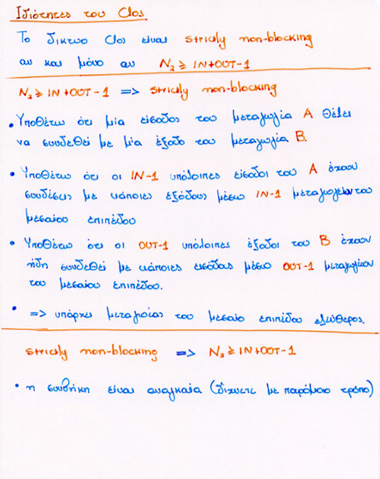 Ιδιότητες του Clos.
Το δίκτυο Clos είναι strictly non-blocking
αν και μόνο αν N₂ ≥ IN+OUT-1
N₂ ≥ IN+OUT-1 => strictly non-blocking
• Υποθέτω ότι μία είσοδος του μεταγωγέα A θέλει
να συνδεθεί με μία έξοδο του μεταγωγέα B.
• Υποθέτω ότι οι IN-1 υπόλοιπες είσοδοι του A έχουν
συνδέσεις με κάποιες εξόδους μέσω IN-1 μεταγωγείς του
μεσαίου επιπέδου
• Υποθέτω ότι οι OUT-1 υπόλοιπες έξοδοι του B έχουν
ήδη συνδεθεί με κάποιες εισόδους μέσω OUT-1 μεταγωγέων
του μεσαίου επιπέδου.
• => υπάρχει μεταγωγέας του μεσαίο επιπέδου ελεύθερος.
strictly non-blocking => N₂ ≥ IN+OUT-1
• η συνθήκη είναι αναγκαία (δείχνετε με παρόμοιο τρόπο)